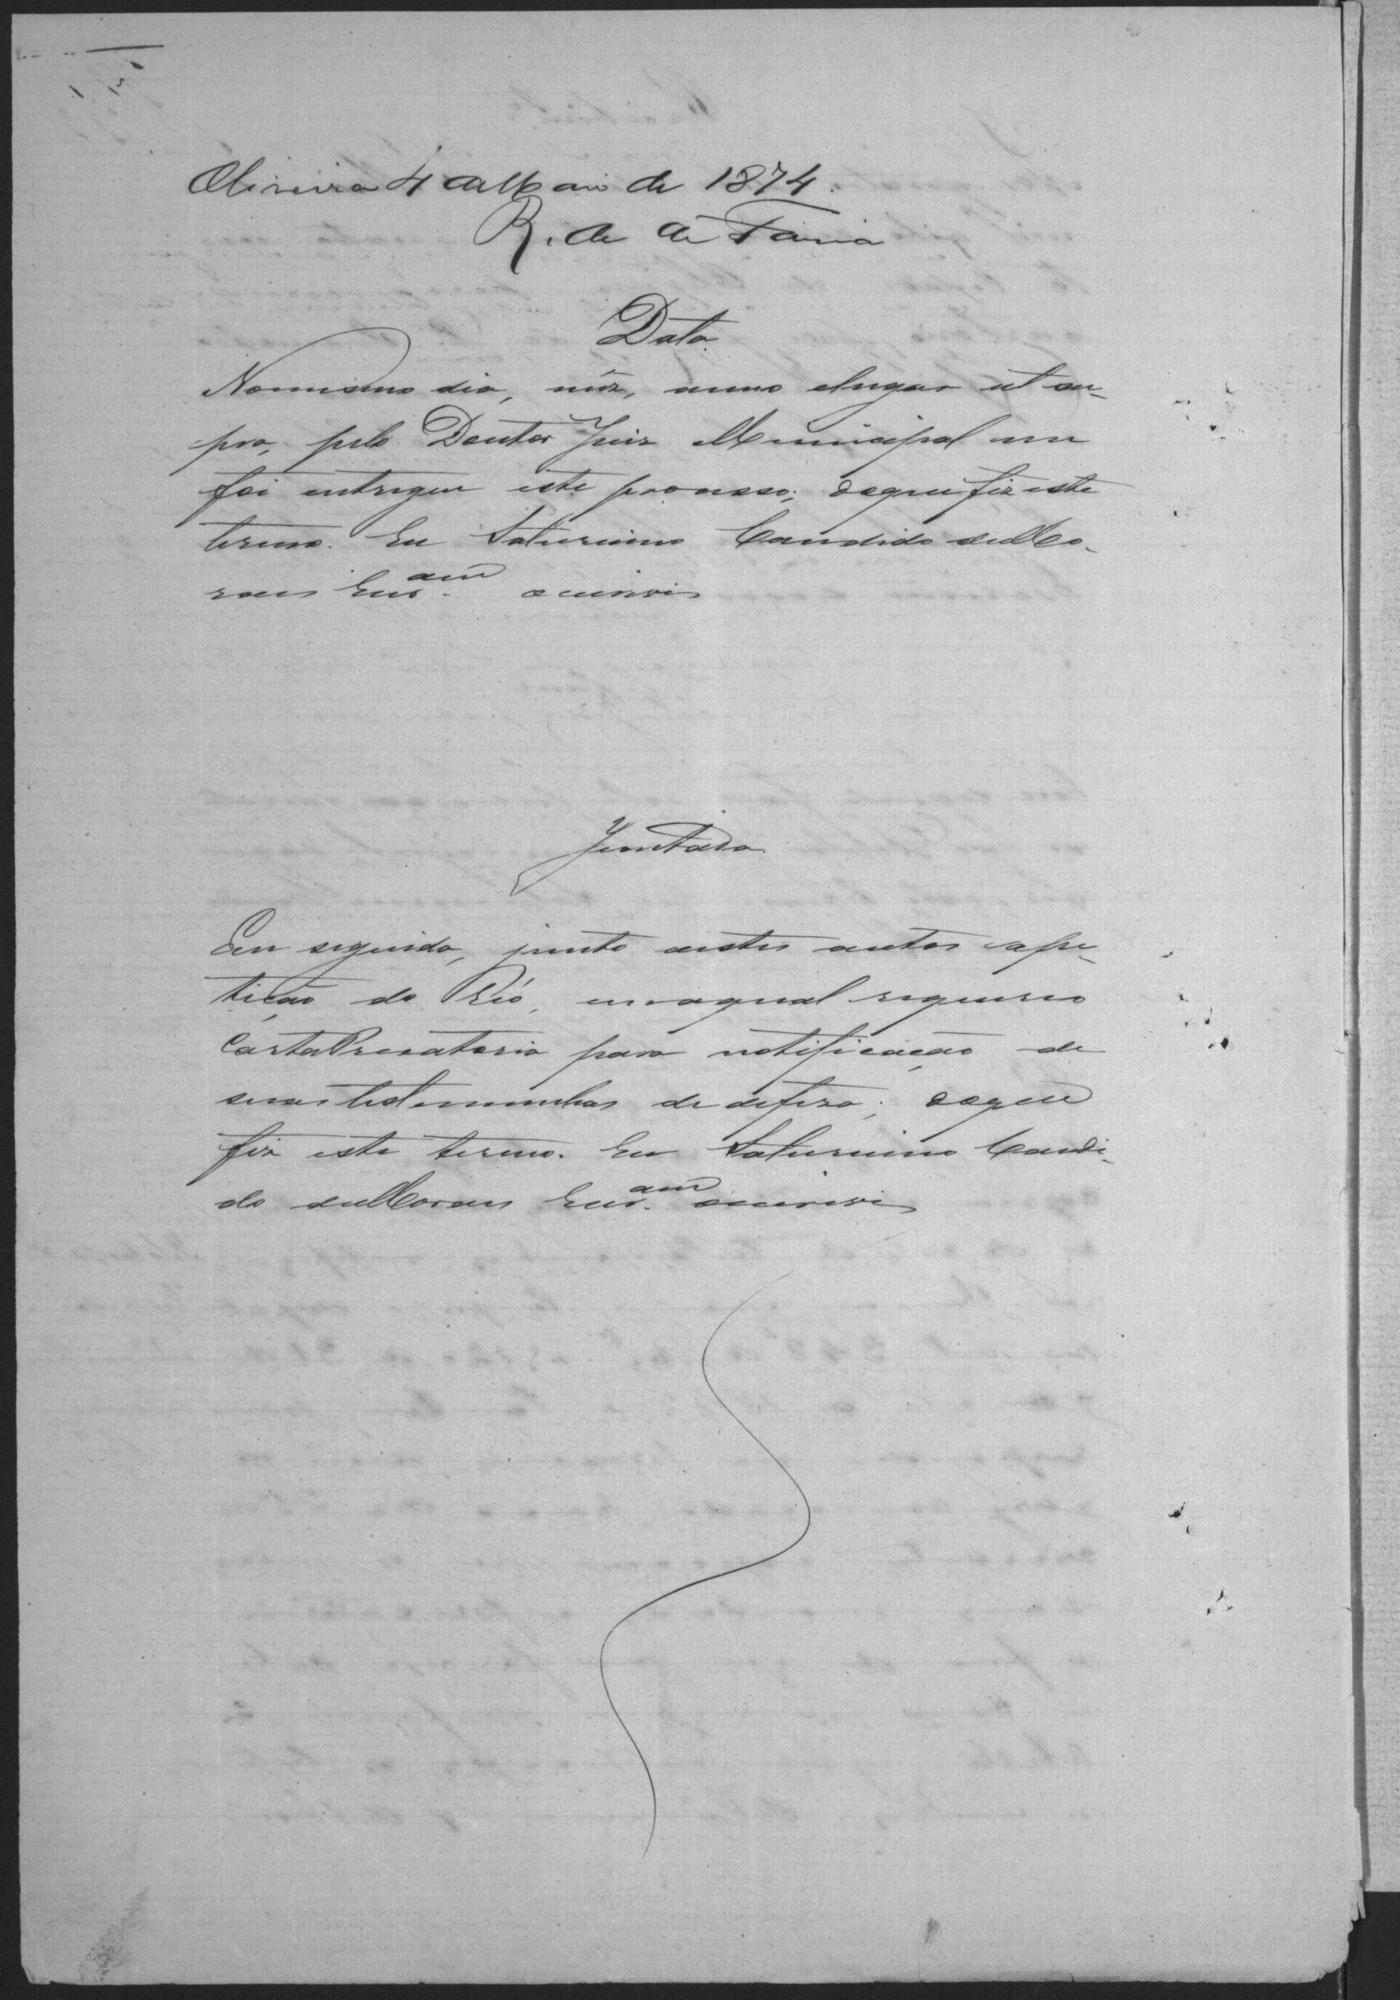 Oliveira 4 de Maio de 1874.
R. de A. Faria
Data
No mesmo dia, mez, anno elugar ut su-
pra, pelo Doutor Juiz Municipal me
foi entregue este processo; doque fiz este
termo. Eu Saturnino Candido deMo-
raes Escr.am oescrevi
Juntada
Em seguida, junto aestes autos ape-
tição do Réo, em aqual requereo
Carta Precatoria para notificação de
suas testemunhas de defeza; doque
fiz este termo. Eu Saturnino Candi-
do deMoraes Escr.am oescrevi